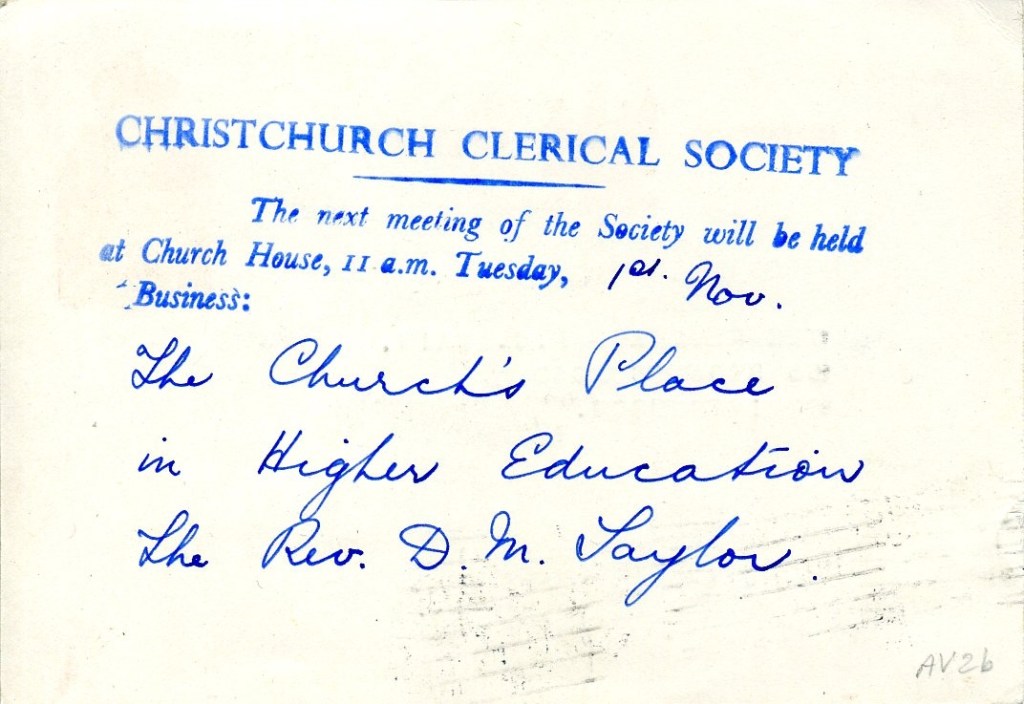 CHRISTCHURCH CLERICAL SOCIETY
The next meeting of the Society will be held
at Church House, 11 a.m. Tuesday, 1st. Nov.
Business:
The Church's Place
in Higher Education
The Rev. D. M. Taylor.
AV26